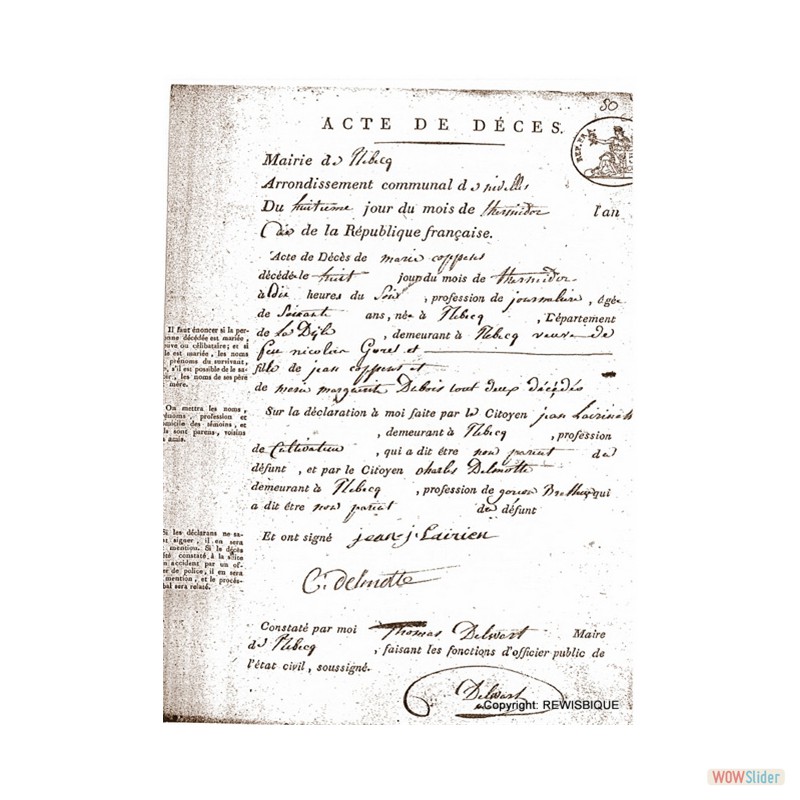 80
ACTE DE DÉCES.
REP. FRA
Mairie de Rebecq
Arrondissement communal de nivelles
Du huitieme jour du mois de thermidor l'an
Dix de la République française.
Acte de Décès de marie coppens
décédé le huit jour du mois de thermidor
à dix heures du Soir, profession de journaliere, âgée
de Soixante ans, née à Rebecq, Département
de La Dyle, demeurant à Rebecq veuve de
feu nicolas et
fille de jean coppens et
de marie marguerite Debois tout deux décédés
Sur la déclaration à moi faite par le Citoyen jean
, demeurant à Rebecq, profession
de Cultivateur, qui a dit être non parent du
défunt, et par le Citoyen charles Delmotte
demeurant à Rebecq, profession de qui
a dit être non parent du défunt
Et ont signé jean j Lairien
C. Delmotte
Constaté par moi Thomas Delwart Maire
de Rebecq, faisant les fonctions d'officier public de
l'état civil, soussigné.
Delwart
Il faut énoncer si la per-
onne décédée est mariée,
uve ou célibataire; et si
le est mariée, les noms
prénoms du survivant,
, s'il est possible de le sa-
ir, les noms de ses père
mère.
On mettra les noms,
énoms, profession et
micile des témoins, et
ils sont parens, voisins
amis.
Si les déclarans ne sa-
ent signer, il en sera
mention. Si le décès
été constaté à la suite
n accident par un of-
er de police, il en sera
mention, et le procès-
bal sera relaté.
Copyright: REWISBIQUE
WOWSlider